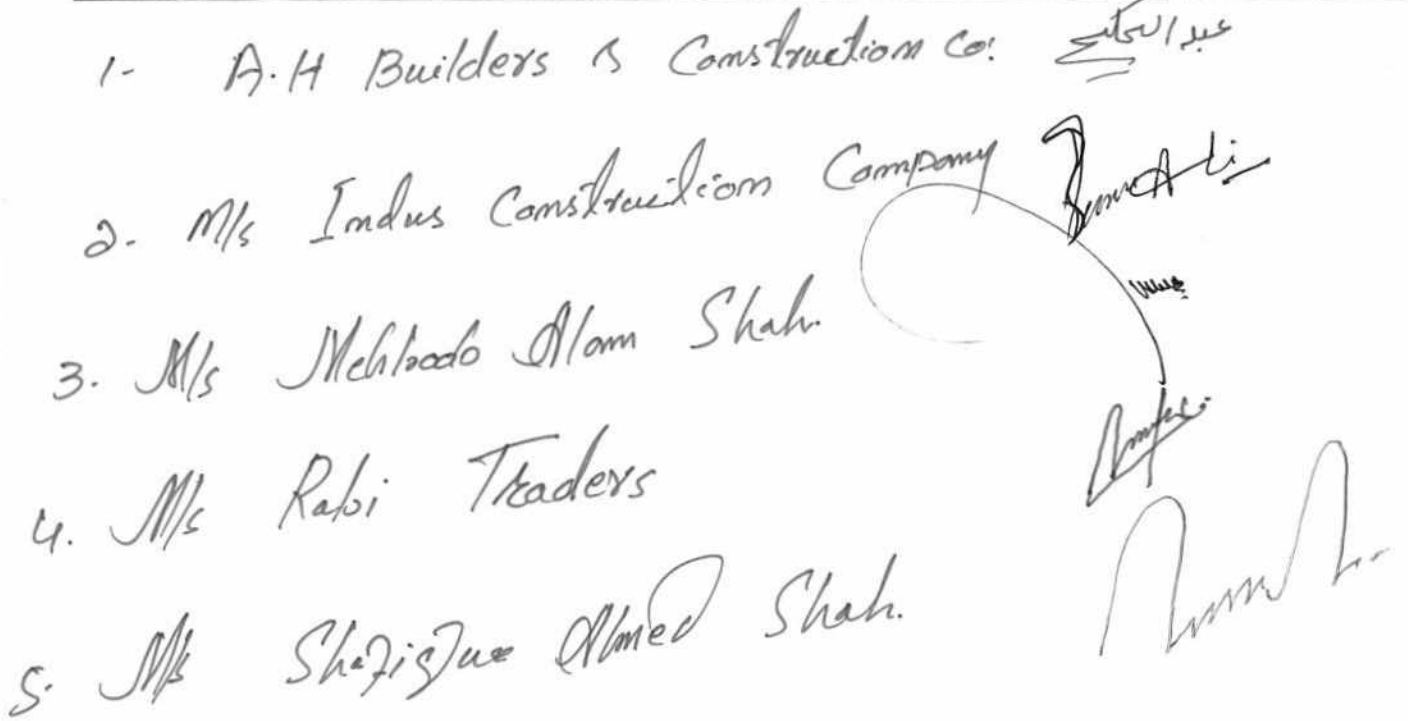 1- A.H Builders & Construction Co: عبد الحکیم
2. M/s Indus Construction Company
3. M/s Mehboob Alam Shah.
4. M/s Rabi Traders
5. M/s Shafique Ahmed Shah.